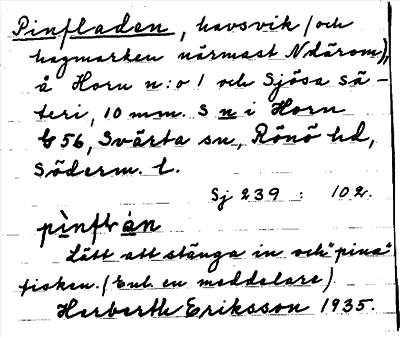 Pinfladen, havsvik (och
hagmarken närmast N därom),
å Horn n:o 1 och Sjösa sä-
teri, 10 mm. S n i Horn
G 56, Svärta sn, Rönö hd,
Söderm. l.
Sj 239 : 102.
pìnflràn
Lätt att stänga in och "pina"
fisken. (Enl. en meddelare)
Herberth Eriksson 1935.